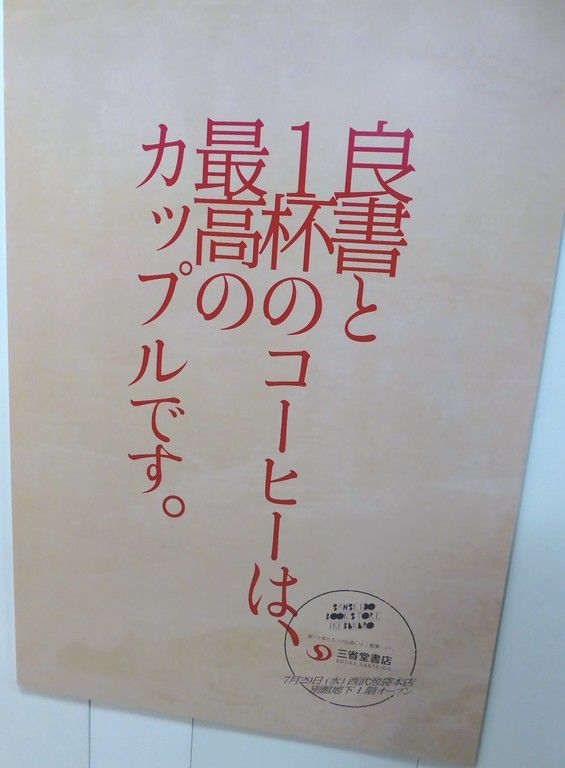 良書と
1杯のコーヒーは、
最高の
カップルです。
SANSEIDO
BOOK STORE
IKEBUKURO
三省堂書店
BOOKS SANSEIDO
7月29日(水)西武池袋本店
別館地下1階オープン